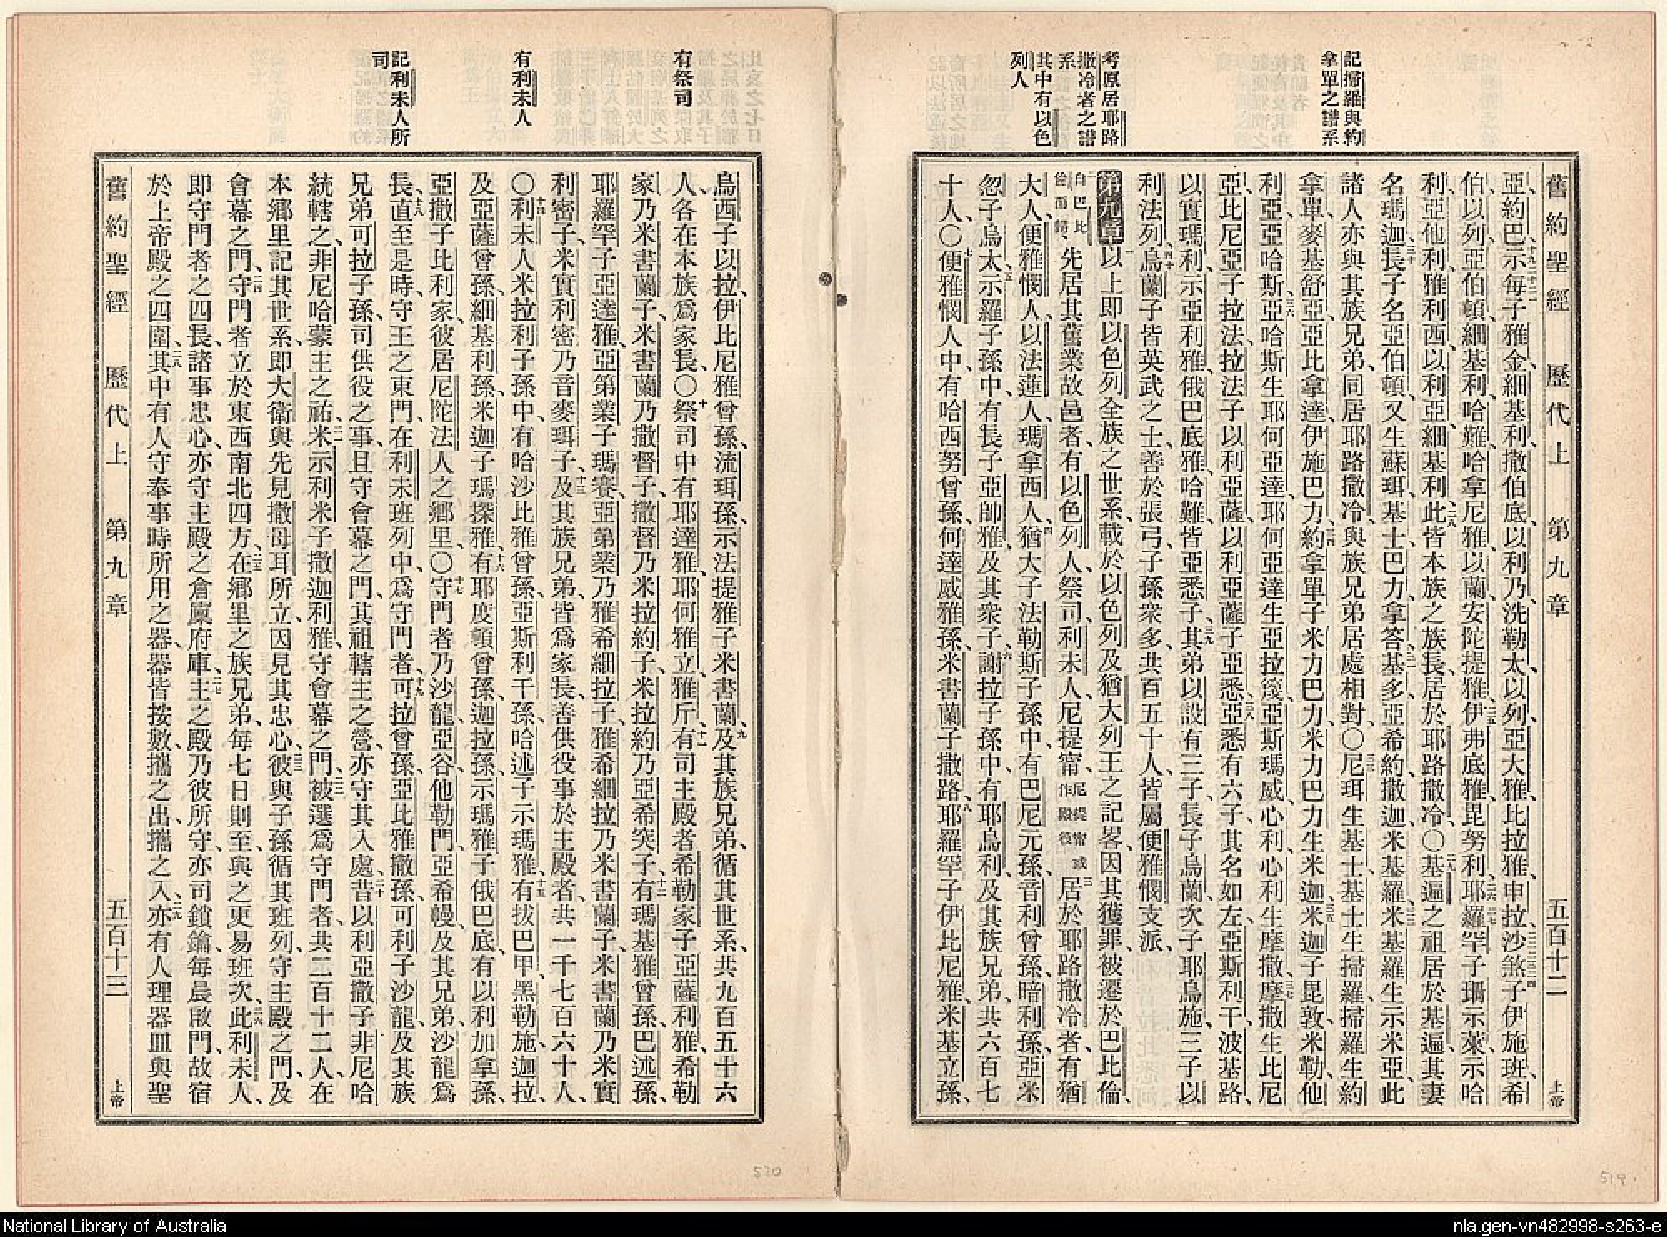 記掃羅與約
拿單之譜系
考原居耶路
撒冷者之譜
系
其中有以色
列人
舊約聖經 歷代上 第九章 五百十二 上帝
亞約巴示每子雅金細基利撒伯底以利乃洗勒太以列亞大雅比拉雅申拉沙煞子伊施班希
伯以列亞伯頓細基利哈難哈拿尼雅以蘭安陀提雅伊弗底雅毘努利耶羅罕子珊示萊示哈
利亞他利雅利西以利亞細基利此皆本族之族長居於耶路撒冷〇基遍之祖居於基遍其妻
名瑪迦長子名亞伯頓又生蘇珥基士巴力拿答基多亞希約撒迦米基羅米基羅生示米亞此
諸人亦與其族兄弟同居耶路撒冷與族兄弟居處相對〇尼珥生基士基士生掃羅掃羅生約
拿單麥基舒亞亞比拿達伊施巴力約拿單子米力巴力米力巴力生米迦米迦子毘敦米勒他
利亞亞哈斯亞哈斯生耶何亞達耶何亞達生亞拉篾亞斯瑪威心利心利生摩撒摩撒生比尼
亞比尼亞子拉法拉法子以利亞薩以利亞薩子亞悉亞悉有六子其名如左亞斯利干波基路
以實瑪利示亞利雅俄巴底雅哈難皆亞悉子其弟以設有三子長子烏蘭次子耶烏施三子以
利法列烏蘭子皆英武之士善於張弓子孫眾多共百五十人皆屬便雅憫支派
第九章 以上即以色列全族之世系載於以色列及猶大列王之記畧因其獲罪被遷於巴比倫
自巴比倫而歸先居其舊業故邑者有以色列人祭司利未人尼提甯尼提甯或作殿役居於耶路撒冷者有猶
大人便雅憫人以法蓮人瑪拿西人猶大子法勒斯子孫中有巴尼元孫音利曾孫暗利孫亞米
忽子烏太示羅子孫中有長子亞帥雅及其衆子謝拉子孫中有耶烏利及其族兄弟共六百七
十人〇便雅憫人中有哈西努曾孫何達威雅孫米書蘭子撒路耶羅罕子伊比尼雅米基立孫
有祭司
有利未人
記利未人所
司
烏西子以拉伊比尼雅曾孫流珥孫示法提雅子米書蘭及其族兄弟循其世系共九百五十六
人各在本族爲家長〇祭司中有耶達雅耶何雅立雅斤有司主殿者希勒家子亞薩利雅希勒
家乃米書蘭子米書蘭乃撒督子撒督乃米拉約子米拉約乃亞希突子有瑪基雅曾孫巴述孫
耶羅罕子亞達雅亞第業子瑪賽亞第業乃雅希細拉子雅希細拉乃米書蘭子米書蘭乃米實
利密子米實利密乃音麥珥子及其族兄弟皆爲家長善供役事於主殿者共一千七百六十人
〇利未人米拉利子孫中有哈沙比雅曾孫亞斯利干孫哈述子示瑪雅有拔巴甲黑勒施迦拉
及亞薩曾孫細基利孫米迦子瑪探雅有耶度頓曾孫迦拉孫示瑪雅子俄巴底有以利加拿孫
亞撒子比利家彼居尼陀法人之鄉里〇守門者乃沙龍亞谷他勒門亞希幔及其兄弟沙龍爲
長直至是時守王之東門在利未班列中爲守門者可拉曾孫亞比雅撒孫可利子沙龍及其族
兄弟可拉子孫司供役之事且守會幕之門其祖轄主之營亦守其入處昔以利亞撒子非尼哈
統轄之非尼哈蒙主之祐米示利米子撒迦利雅守會幕之門被選爲守門者共二百十二人在
本鄉里記其世系即大衛與先見撒母耳所立因見其忠心彼與子孫循其班列守主殿之門及
會幕之門守門者立於東西南北四方在鄉里之族兄弟每七日則至與之更易班次此利未人
即守門者之四長諸事忠心亦守主殿之倉廩府庫主之殿乃彼所守亦司鎖鑰每晨啟門故宿
於上帝殿之四圍其中有人守奉事時所用之器器皆按數攜之出攜之入亦有人理器皿與聖
舊約聖經 歷代上 第九章 五百十三 上帝
530
519
National Library of Australia
nla.gen-vn482998-s263-e